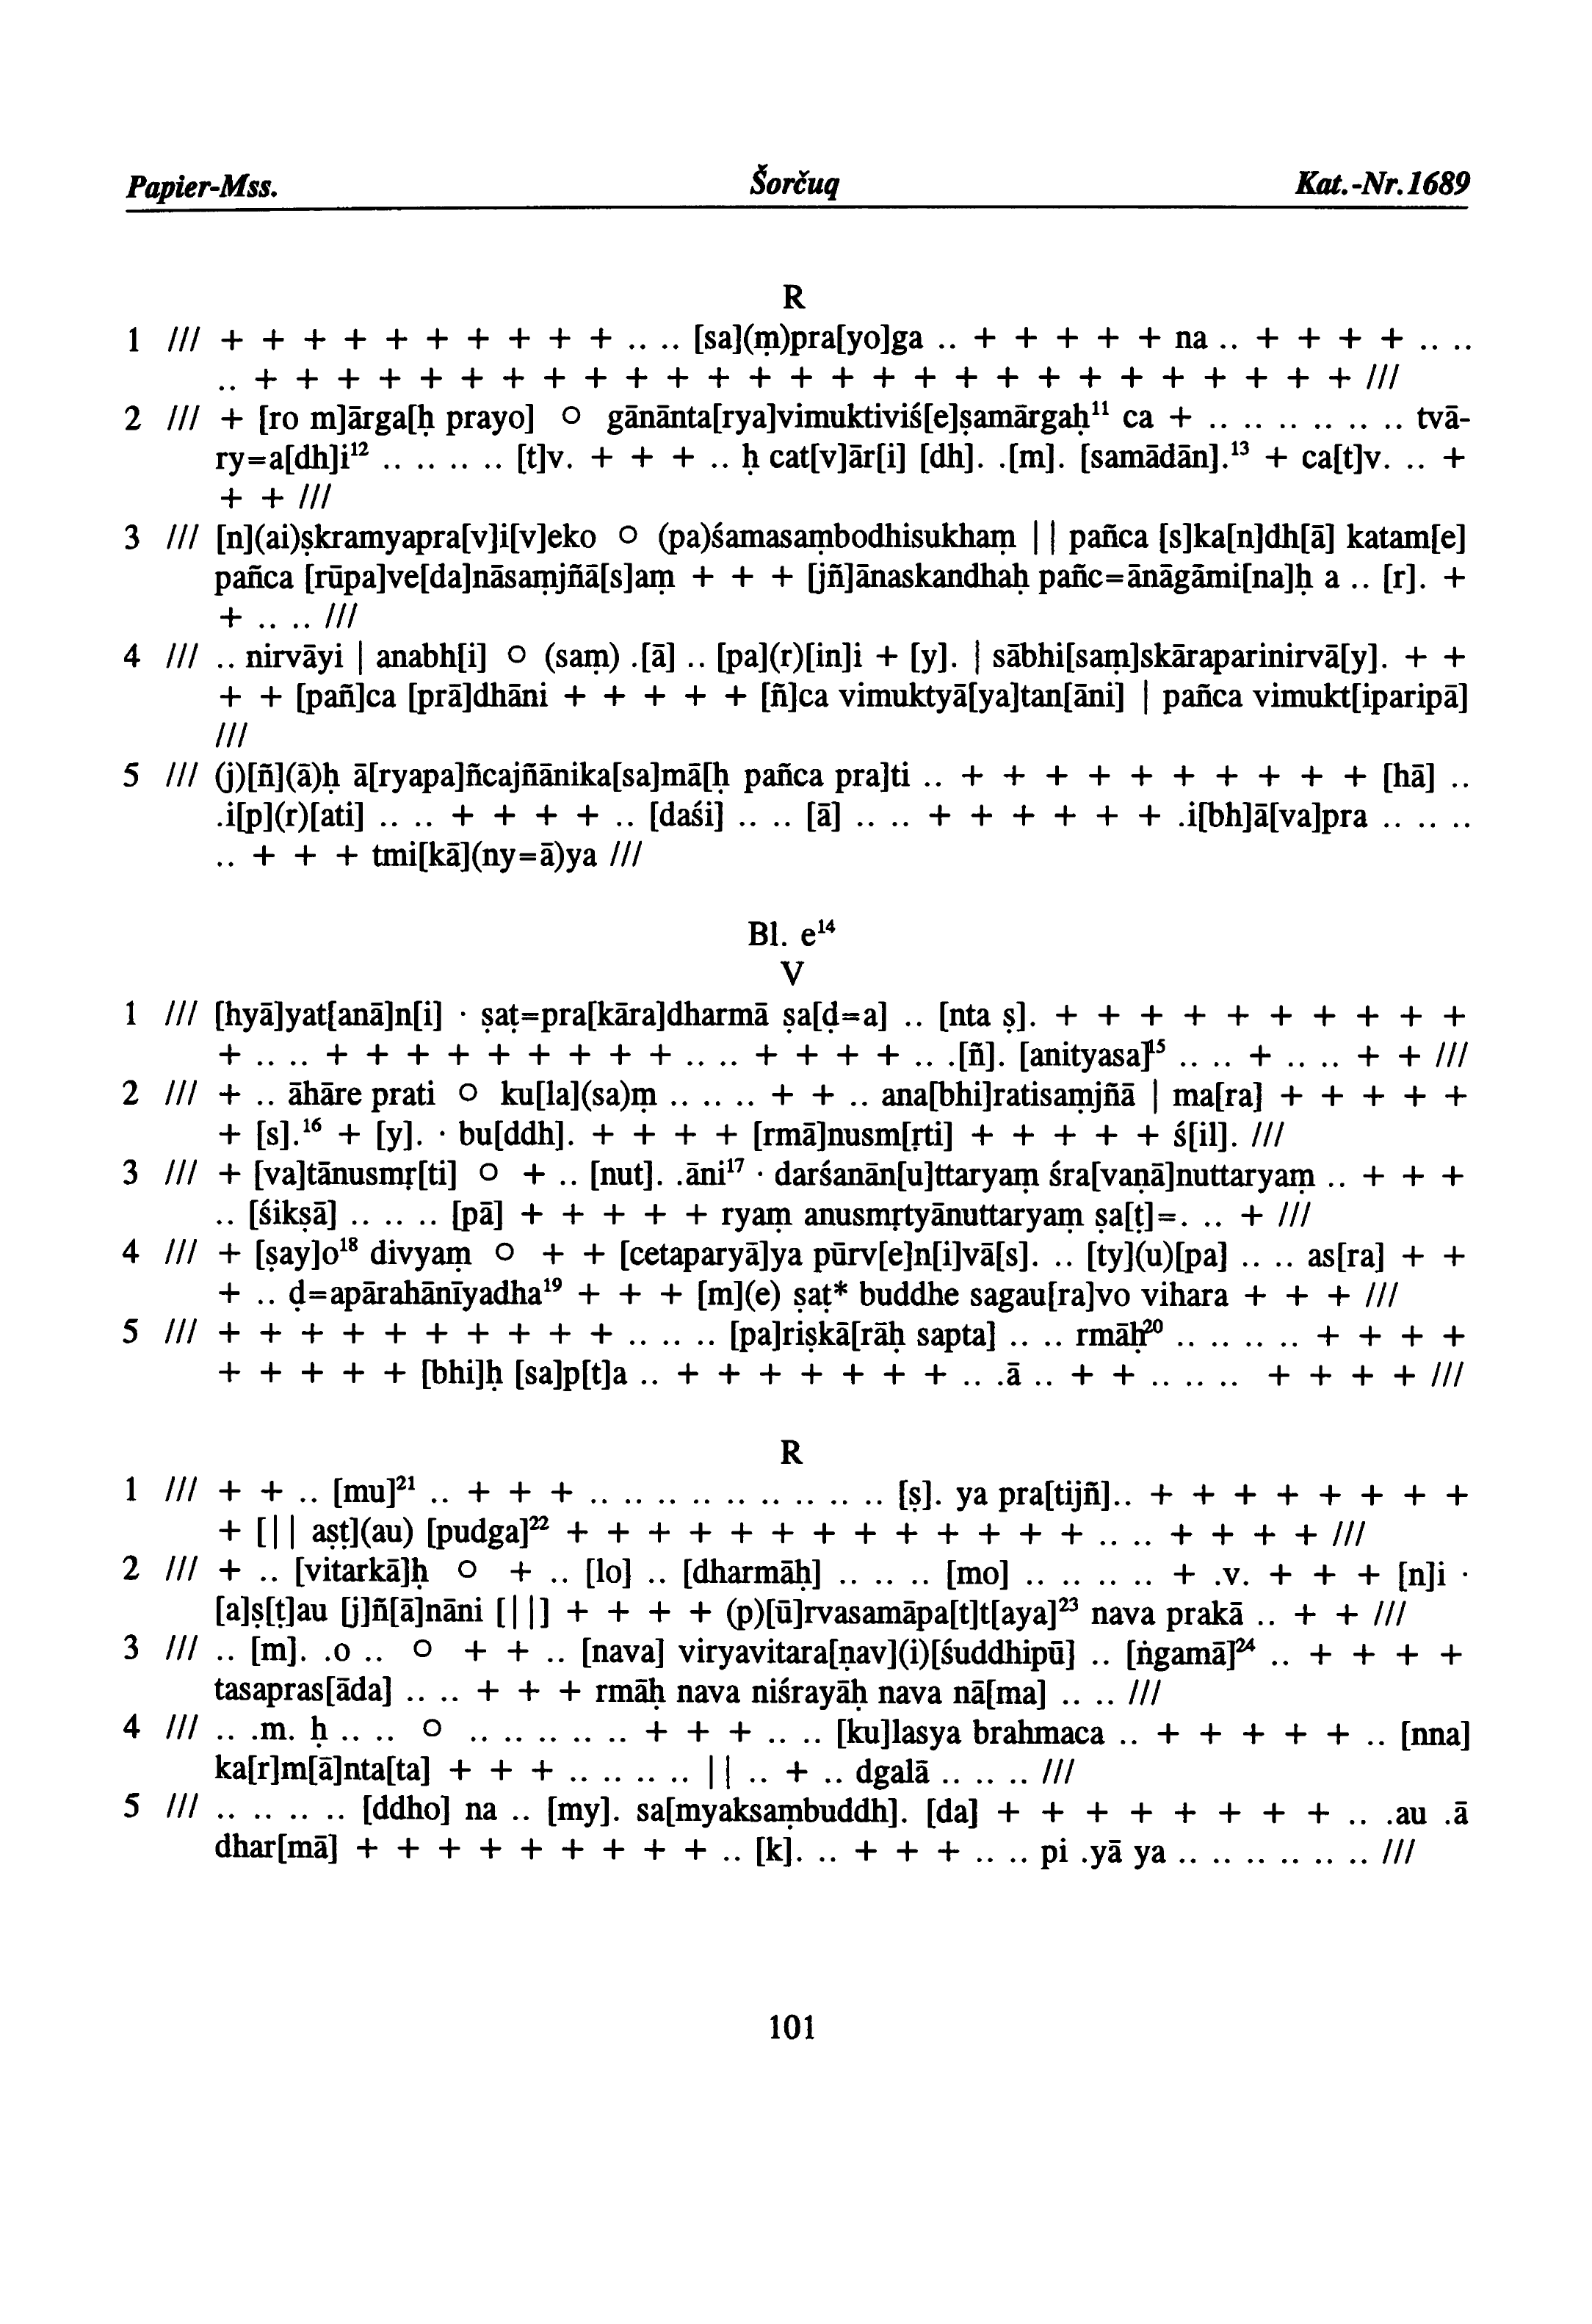 Papier-Mss. Šorčuq Kat.-Nr.1689
R
1 /// + + + + + + + + + + .. .. [sa](ṃ)pra[yo]ga .. + + + + + na .. + + + + .. ..
.. + + + + + + + + + + + + + + + + + + + + + + + + + + + ///
2 /// + [ro m]ārga[ḥ prayo] ○ gānānta[rya]vimuktiviś[e]ṣamārgaḥ¹¹ ca + .. .. .. .. .. .. tvā-
ry=a[dh]i¹² .. .. .. .. [t]v. + + + .. ḥ cat[v]ār[i] [dh]. .[m]. [samādān].¹³ + ca[t]v. .. +
+ + ///
3 /// [n](ai)ṣkramyapra[v]i[v]eko ○ (pa)śamasaṃbodhisukhaṃ || pañca [s]ka[n]dh[ā] katam[e]
pañca [rūpa]ve[da]nāsaṃjñā[s]aṃ + + + [jñ]ānaskandhaḥ pañc=ānāgāmi[na]ḥ a .. [r]. +
+ .. .. ///
4 /// .. nirvāyi | anabh[i] ○ (saṃ) .[ā] .. [pa](r)[in]i + [y]. | sābhi[saṃ]skāraparinirvā[y]. + +
+ + [pañ]ca [prā]dhāni + + + + + [ñ]ca vimuktyā[ya]tan[āni] | pañca vimukt[iparipā]
///
5 /// (j)[ñ](ā)ḥ ā[ryapa]ñcajñānika[sa]mā[ḥ pañca pra]ti .. + + + + + + + + + + [hā] ..
.i[p](r)[ati] .. .. + + + + .. [daśi] .. .. [ā] .. .. + + + + + + .i[bh]ā[va]pra .. .. ..
.. + + + tmi[kā](ny=ā)ya ///
Bl. e¹⁴
V
1 /// [hyā]yat[anā]n[i] · ṣaṭ=pra[kāra]dharmā ṣa[ḍ=a] .. [nta ṣ]. + + + + + + + + + +
+ .. .. + + + + + + + + + .. .. + + + + .. .[ñ]. [anityasa]¹⁵ .. .. + .. .. + + ///
2 /// + .. āhāre prati ○ ku[la](sa)ṃ .. .. .. + + .. ana[bhi]ratisaṃjñā | ma[ra] + + + + +
+ [s].¹⁶ + [y]. · bu[ddh]. + + + + [rmā]nusm[ṛti] + + + + + ś[il]. ///
3 /// + [va]tānusmṛ[ti] ○ + .. [nut]. .āni¹⁷ · darśanān[u]ttaryaṃ śra[vaṇā]nuttaryaṃ .. + + +
.. [śikṣā] .. .. .. [pā] + + + + + ryaṃ anusmṛtyānuttaryaṃ ṣa[ṭ]=. .. + ///
4 /// + [ṣay]o¹⁸ divyaṃ ○ + + [cetaparyā]ya pūrv[e]n[i]vā[s]. .. [ty](u)[pa] .. .. as[ra] + +
+ .. ḍ=apārahānīyadha¹⁹ + + + [m](e) ṣaṭ* buddhe sagau[ra]vo vihara + + + ///
5 /// + + + + + + + + + + .. .. .. [pa]riṣkā[rāḥ sapta] .. .. rmāḥ²⁰ .. .. .. .. + + + +
+ + + + + [bhi]ḥ [sa]p[t]a .. + + + + + + + .. .ā .. + + .. .. .. + + + + ///
R
1 /// + + .. [mu]²¹ .. + + + .. .. .. .. .. .. .. .. .. [ṣ]. ya pra[tijñ].. + + + + + + + +
+ [|| aṣṭ](au) [pudga]²² + + + + + + + + + + + + + .. .. + + + + ///
2 /// + .. [vitarkā]ḥ ○ + .. [lo] .. [dharmāḥ] .. .. .. [mo] .. .. .. .. + .v. + + + [n]i ·
[a]ṣ[ṭ]au [j]ñ[ā]nāni [||] + + + + (p)[ū]rvasamāpa[t]t[aya]²³ nava prakā .. + + ///
3 /// .. [m]. .o .. ○ + + .. [nava] viryavitara[ṇav](i)[śuddhipū] .. [ṅgamā]²⁴ .. + + + +
tasapras[āda] .. .. + + + rmāḥ nava niśrayāḥ nava nā[ma] .. .. ///
4 /// .. .m. ḥ .. .. ○ .. .. .. .. .. + + + .. .. [ku]lasya brahmaca .. + + + + + .. [nna]
ka[r]m[ā]nta[ta] + + + .. .. .. .. || .. + .. dgalā .. .. .. ///
5 /// .. .. .. .. [ddho] na .. [my]. sa[myaksaṃbuddh]. [da] + + + + + + + + .. .au .ā
dhar[mā] + + + + + + + + + .. [k]. .. + + + .. .. pi .yā ya .. .. .. .. .. .. ///
101